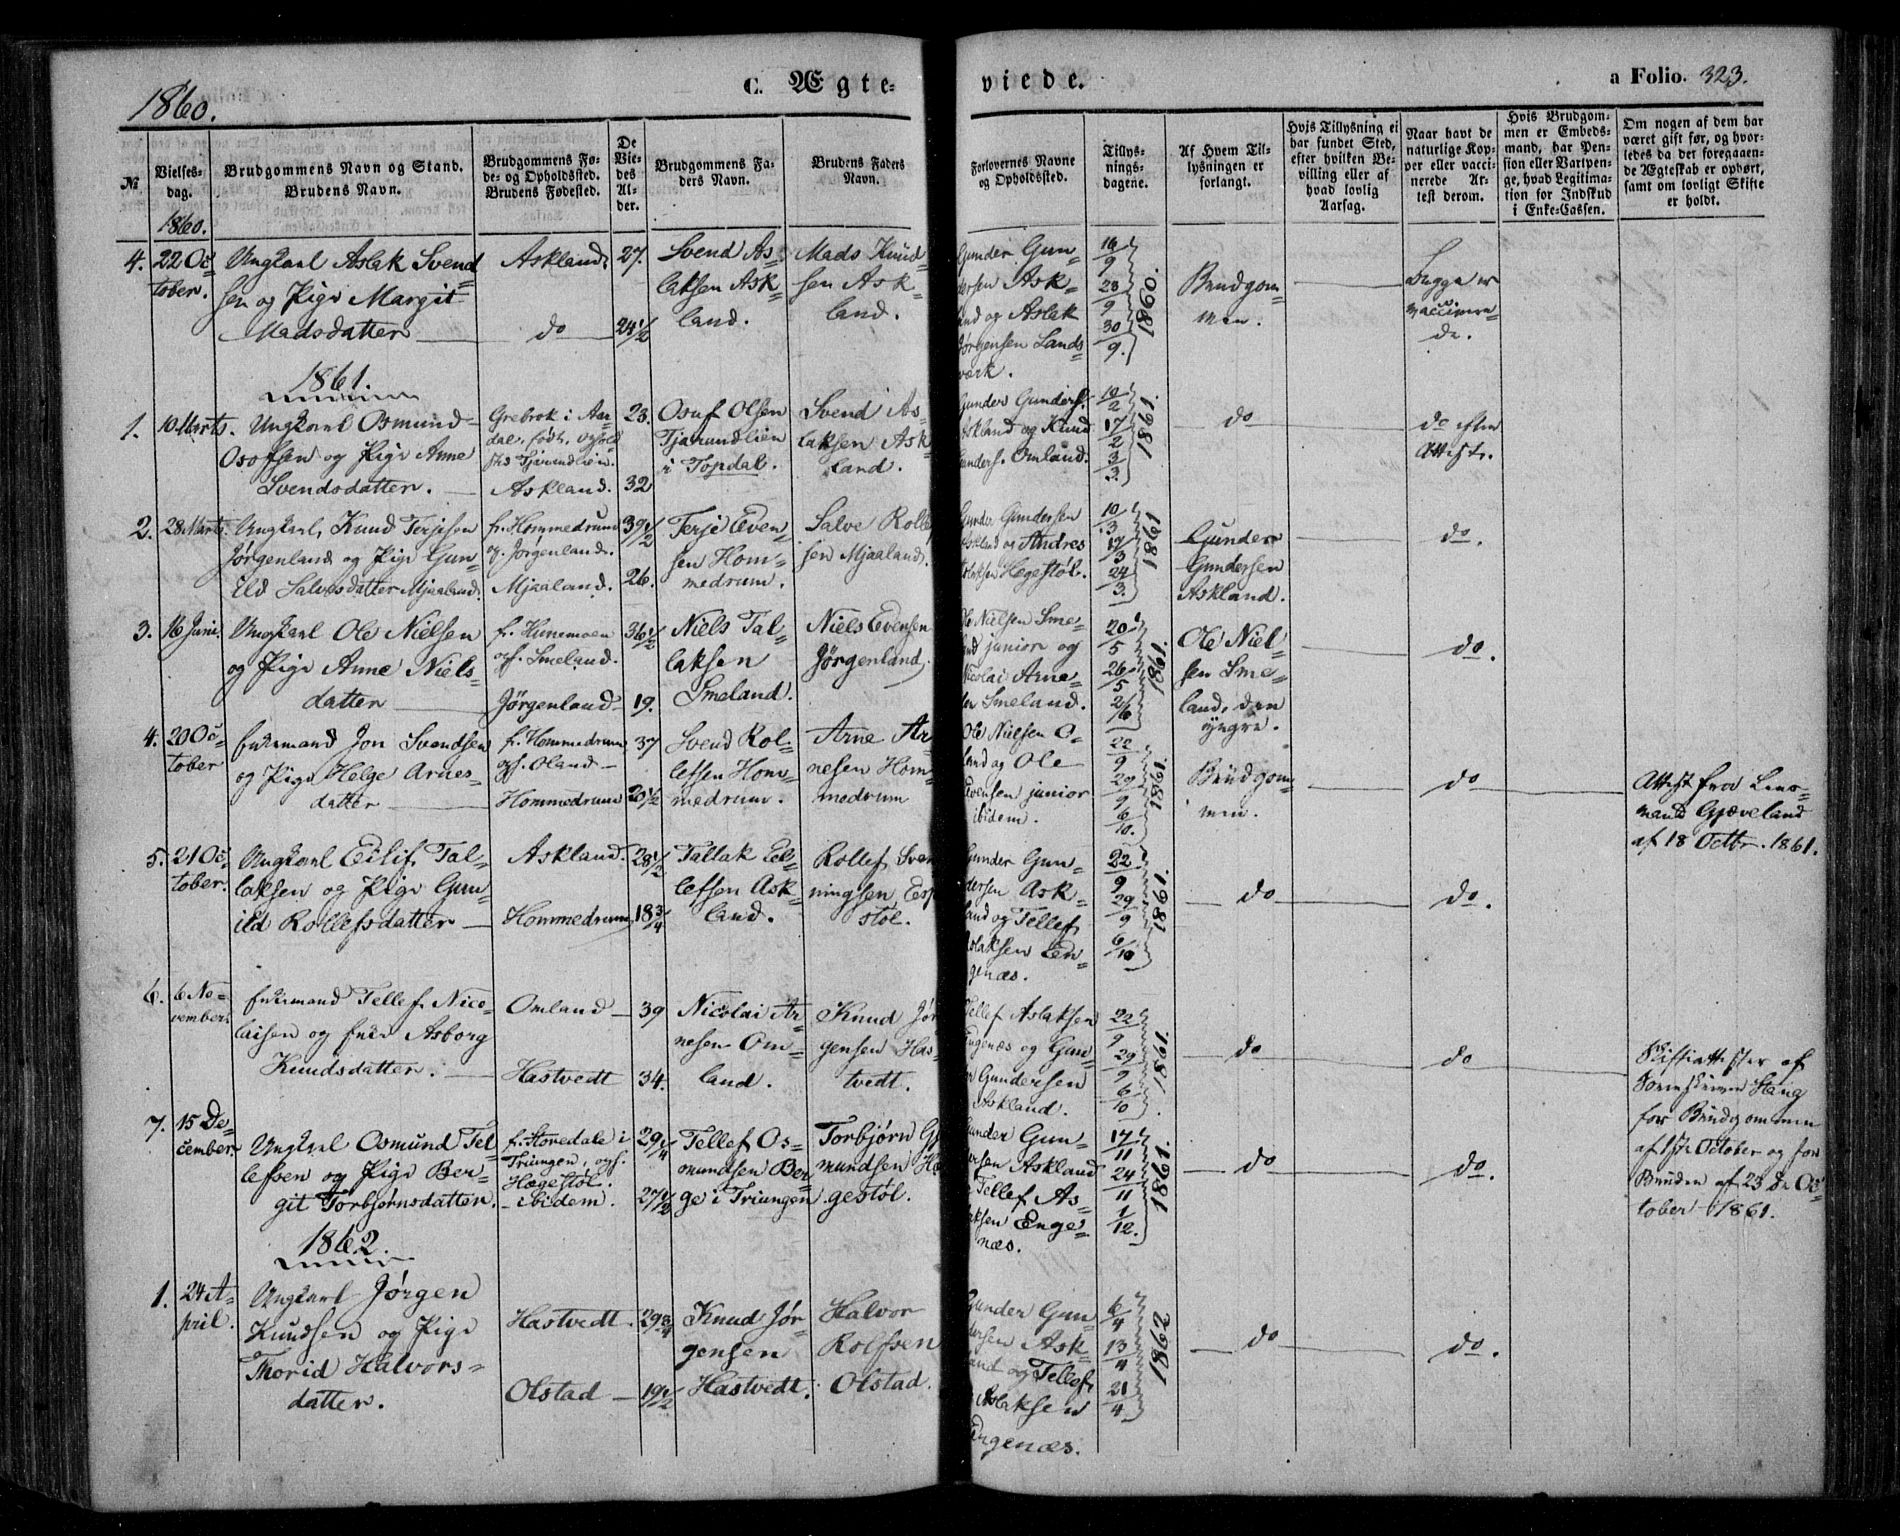 1860.
C. Ægte-
viede.
a Folio. 323.
No.
Vielses-
dag.
Brudgommens Navn og Stand.
Brudens Navn.
Brudgommens Fø-
de- og Opholdsted.
Brudens Fødested.
De
Vie-
des
Al-
der.
Brudgommens Fa-
ders Navn.
Brudens Faders
Navn.
Forlovernes Navne
og Opholdsted.
Tillys-
nings-
dagene.
Af Hvem Til-
lysningen er
forlangt.
Hvis Tillysning ei
har fundet Sted,
efter hvilken Be-
villing eller af
hvad lovlig
Aarsag.
Naar havt de
naturlige Kop-
per eller vacci-
nerede. At-
test derom.
Hvis Brudgom-
men er Embeds-
mand, har Pen-
sion eller Vartpen-
ge, hvad Legitima-
tion for Indskud
i Enke-Cassen.
Om nogen af dem har
været gift før, og hvor-
ledes da det foregaaen-
de Ægteskab er ophørt,
samt om lovligt Skifte
er holdt.
1860.
4.
22 Oc-
tober.
Ungkarl Aslak Svend-
sen og Pige Margit
Madsdatter
Askland.
do
27.
24 1/2
Svend As-
laksen Ask-
land.
Mads Knud-
sen Ask-
land.
Gunder Gun-
dersen Ask-
land og Aslak
Jørgensen Lands-
værk.
16/9
23/9
30/9.
1860.
Brudgom-
men.
Begge er
vaccinere-
de.
1861.
1.
10 Marts.
Ungkarl Osmund
Osofsen og Pige Anne
Svendsdatter.
Grebrok i Aar-
dal, født, ophold
Tjarandlien.
Askland.
23.
32
Osuf Olsen
Tjarandlien
i Topdal.
Svend As-
laksen Ask-
land.
Gunder Gunders.
Askland og Knud
Gunders. Omland.
10/2
17/2
3/3.
1861.
do
do efter
Attest.
2.
28 Marts.
Ungkarl Knud Terjesen
Jørgenland og Pige Gun-
ild Salvesdatter Mjaaland.
f. Hommedrum
o. Jørgenland.
Mjaaland.
39 1/2
26.
Terje Even-
sen Hom-
medrum.
Salve Rolle
sen Mjaaland.
Gunder Gundersen
Askland og Andres
Aslaksen Hegestøl.
10/3
17/3
24/3.
1861
Gunder
Gundersen
Askland.
do.
3.
16 Juni.
Ungkarl Ole Nielsen
og Pige Anne Niels-
datter
f. Hunemoen
oph. Smeland.
Jørgenland
36 1/2
19.
Niels Tal-
laksen
Smeland.
Niels Evensen
Jørgenland.
Ole Nielsen Sme-
land junior og
Nicolai Arne-
sen Smeland.
20/5
26/5
2/6
1861.
Ole Niel-
sen Sme-
land, den
yngre.
do.
4.
20 Oc-
tober
Enkemand Jon Svendsen
og Pige Helge Arnes-
datter
f. Hommedrum
oph. Oland
Hommedrum
37
20 1/2
Svend Rol-
lefsen Hom-
medrum.
Arne Ar-
nesen Hom-
medrum
Ole Nielsen O-
land og Ole
Evensen junior
ibidem.
22/9
29/9
6/10.
1861.
Brudgom-
men.
do
Attest fra Lens-
mand Gjæveland
af 18 Octbr. 1861.
5.
21 Oc-
tober.
Ungkarl Eilif Tal-
laksen og Pige Gun-
ild Rollefsdatter
Askland.
Hommedrum
28 1/2
18 3/4
Tallak Eel-
lefsen Ask-
land.
Rollef Sven
ningsen Esp
støl.
Gunder Gun-
dersen Ask-
land og Tellef
Aslaksen En-
genæs.
22/9
29/9
6/10
1861.
do
do.
6.
6 No-
vember
Enkemand Tellef Nico-
laisen og Enke Asborg
Knudsdatter.
Omland
Hastvedt
39
34.
Nicolai Ar-
nesen Om-
land.
Knud Jør
gensen Has-
tvedt.
Tellef Aslaksen
Engenæs og Gun-
der Gundersen
Askland.
22/9
29/9
6/10
1861.
do
do
Skifteattester af
Sorenskriver Stang
for Brudgommen
af 1ste October og for
Bruden af 23de Oc-
tober 1861.
7.
15 De-
cember
Ungkarl Osmund Tel-
lefsen og Pige Ber-
git Torbjørnsdatter.
f. Storedale i
Triungen, oph.
Hægestøl.
ibidem.
29 1/4
27 1/2
Tellef Os-
mundsen Ber-
ge i Triungen
Torbjørn G
mundsen H
gestøl.
Gunder Gun-
dersen Askland
Tellef As-
laksen Enge-
næs.
17/11
24/11
1/12.
1861.
do
do.
1862.
1.
24 A-
pril.
Ungkarl Jørgen
Knudsen og Pige
Thorid Halvors-
datter.
Hastvedt.
Olstad
29 3/4
19 1/2
Knud Jør-
gensen
Hastvedt.
Halvor
Rolfsen
Olstad.
Gunder Gun-
dersen Ask-
land og Tellef
Aslaksen
Engenæs.
6/4
13/4
21/4.
1862
do
do.